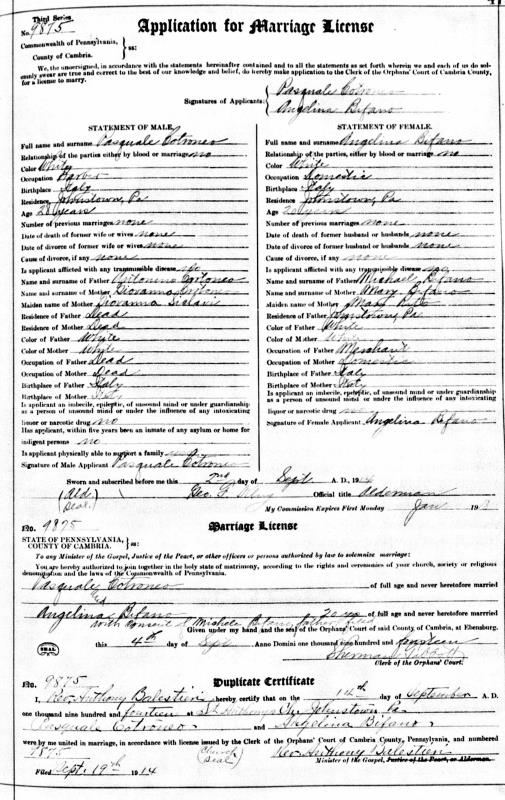 Third Series
No. 9875
Application for Marriage License
Commonwealth of Pennsylvania,
County of Cambria. } ss:
We, the undersigned, in accordance with the statements hereinafter contained and to all the statements as set forth wherein we and each of us do solemnly swear are true and correct to the best of our knowledge and belief, do hereby make application to the Clerk of the Orphans' Court of Cambria County, for a license to marry.
Signatures of Applicants: { Pasquale Cotroneo
Angelina Bifano
STATEMENT OF MALE.
Full name and surname Pasquale Cotroneo
Relationship of the parties either by blood or marriage no
Color White
Occupation Barber
Birthplace Italy
Residence Johnstown, Pa
Age years
Number of previous marriages none
Date of death of former wife or wives none
Date of divorce of former wife or wives none
Cause of divorce, if any none
Is applicant afflicted with any transmissible disease no
Name and surname of Father Cotroneo
Name and surname of Mother Giovanna
Maiden name of Mother Giovanna
Residence of Father Dead
Residence of Mother Dead
Color of Father White
Color of Mother White
Occupation of Father Dead
Occupation of Mother Dead
Birthplace of Father Italy
Birthplace of Mother Italy
Is applicant an imbecile, epileptic, of unsound mind or under guardianship as a person of unsound mind or under the influence of any intoxicating
liquor or narcotic drug no
Has applicant, within five years been an inmate of any asylum or home for
indigent persons no
Is applicant physically able to support a family
Signature of Male Applicant Pasquale Cotroneo
STATEMENT OF FEMALE.
Full name and surname Angelina Bifano
Relationship of the parties, either by blood or marriage no
Color White
Occupation Domestic
Birthplace Italy
Residence Johnstown, Pa
Age 20 years
Number of previous marriages none
Date of death of former husband or husbands none
Date of divorce of former husband or husbands none
Cause of divorce, if any none
Is applicant afflicted with any transmissible disease no
Name and surname of Father Michael Bifano
Name and surname of Mother Mary Bifano
Maiden name of Mother Mary
Residence of Father Johnstown, Pa
Residence of Mother
Color of Father White
Color of Mother White
Occupation of Father Merchant
Occupation of Mother Domestic
Birthplace of Father Italy
Birthplace of Mother Italy
Is applicant an imbecile, epileptic, of unsound mind or under guardianship as a person of unsound mind or under the influence of any intoxicating
liquor or narcotic drug no
Signature of Female Applicant Angelina Bifano
Sworn and subscribed before me this 2nd day of Sept A. D., 1914
(Ald. Seal.) Geo. Official title Alderman
My Commission Expires First Monday Jan 191
No. 9875
Marriage License
STATE OF PENNSYLVANIA,
COUNTY OF CAMBRIA. } ss:
To any Minister of the Gospel, Justice of the Peace, or other officers or persons authorized by law to solemnize marriage:
You are hereby authorized to join together in the holy state of matrimony, according to the rights and ceremonies of your church, society or religious denomination and the laws of the Commonwealth of Pennsylvania.
Pasquale Cotroneo of full age and never heretofore married
and
Angelina Bifano 20 yrs of full age and never heretofore married
with consent of Michele Bifano, father, filed
Given under my hand and the seal of the Orphans' Court of said County of Cambria, at Ebensburg.
SEAL this 4th day of Sept Anno Domini one thousand nine hundred and fourteen
Sherman
Clerk of the Orphans' Court.
No. 9875
Duplicate Certificate
I, Rev. Anthony Balestieri hereby certify that on the 14th day of September A. D.
one thousand nine hundred and fourteen at St. Anthonys Ch. Johnstown Pa.
Pasquale Cotroneo and Angelina Bifano,
were by me united in marriage, in accordance with license issued by the Clerk of the Orphans' Court of Cambria County, Pennsylvania, and numbered
9875 (Church Seal) Rev. Anthony Balestieri
Minister of the Gospel, Justice of the Peace, or Alderman.
Filed Sept. 19th 1914